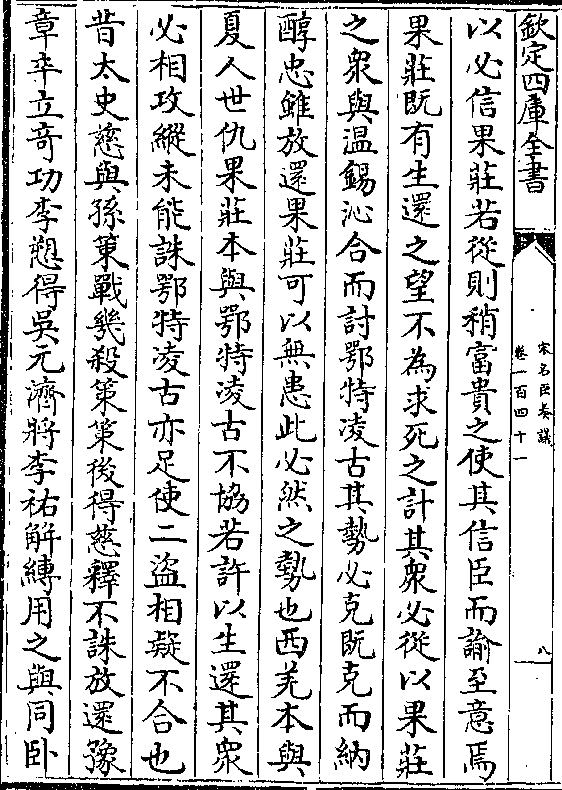 欽定四庫全書
宋名臣奏議
卷一百四十一
八
以必信果莊若從則稍富貴之使其信臣而諭至意焉
果莊既有生還之望不為求死之計其衆必從以果莊
之衆與温錫沁合而討鄂特凌古其勢必克既克而納
醇忠雖放還果莊可以無患此必然之勢也西羌本與
夏人世仇果莊本與鄂特凌古不協若許以生還其衆
必相攻縱未能誅鄂特凌古亦足使二盜相疑不合也
昔太史慈與孫策戰幾殺策策後得慈釋不誅放還豫
章卒立奇功李愬得吳元濟將李祐解縛用之與同卧